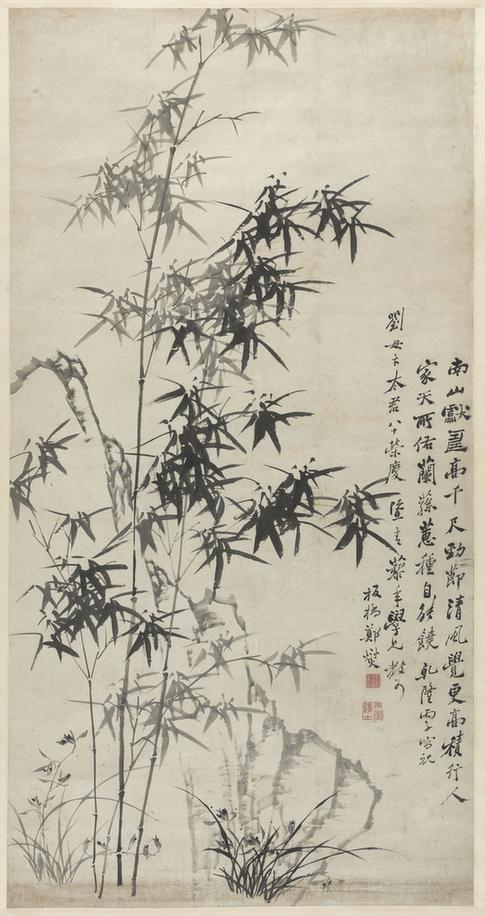 南山獻壽高千尺勁節清風覺更高積行人
家天所佑蘭蓀蕙種自能饒乾隆丙子
劉母卞太君八十榮慶暨青藜年學兄
板橋鄭燮